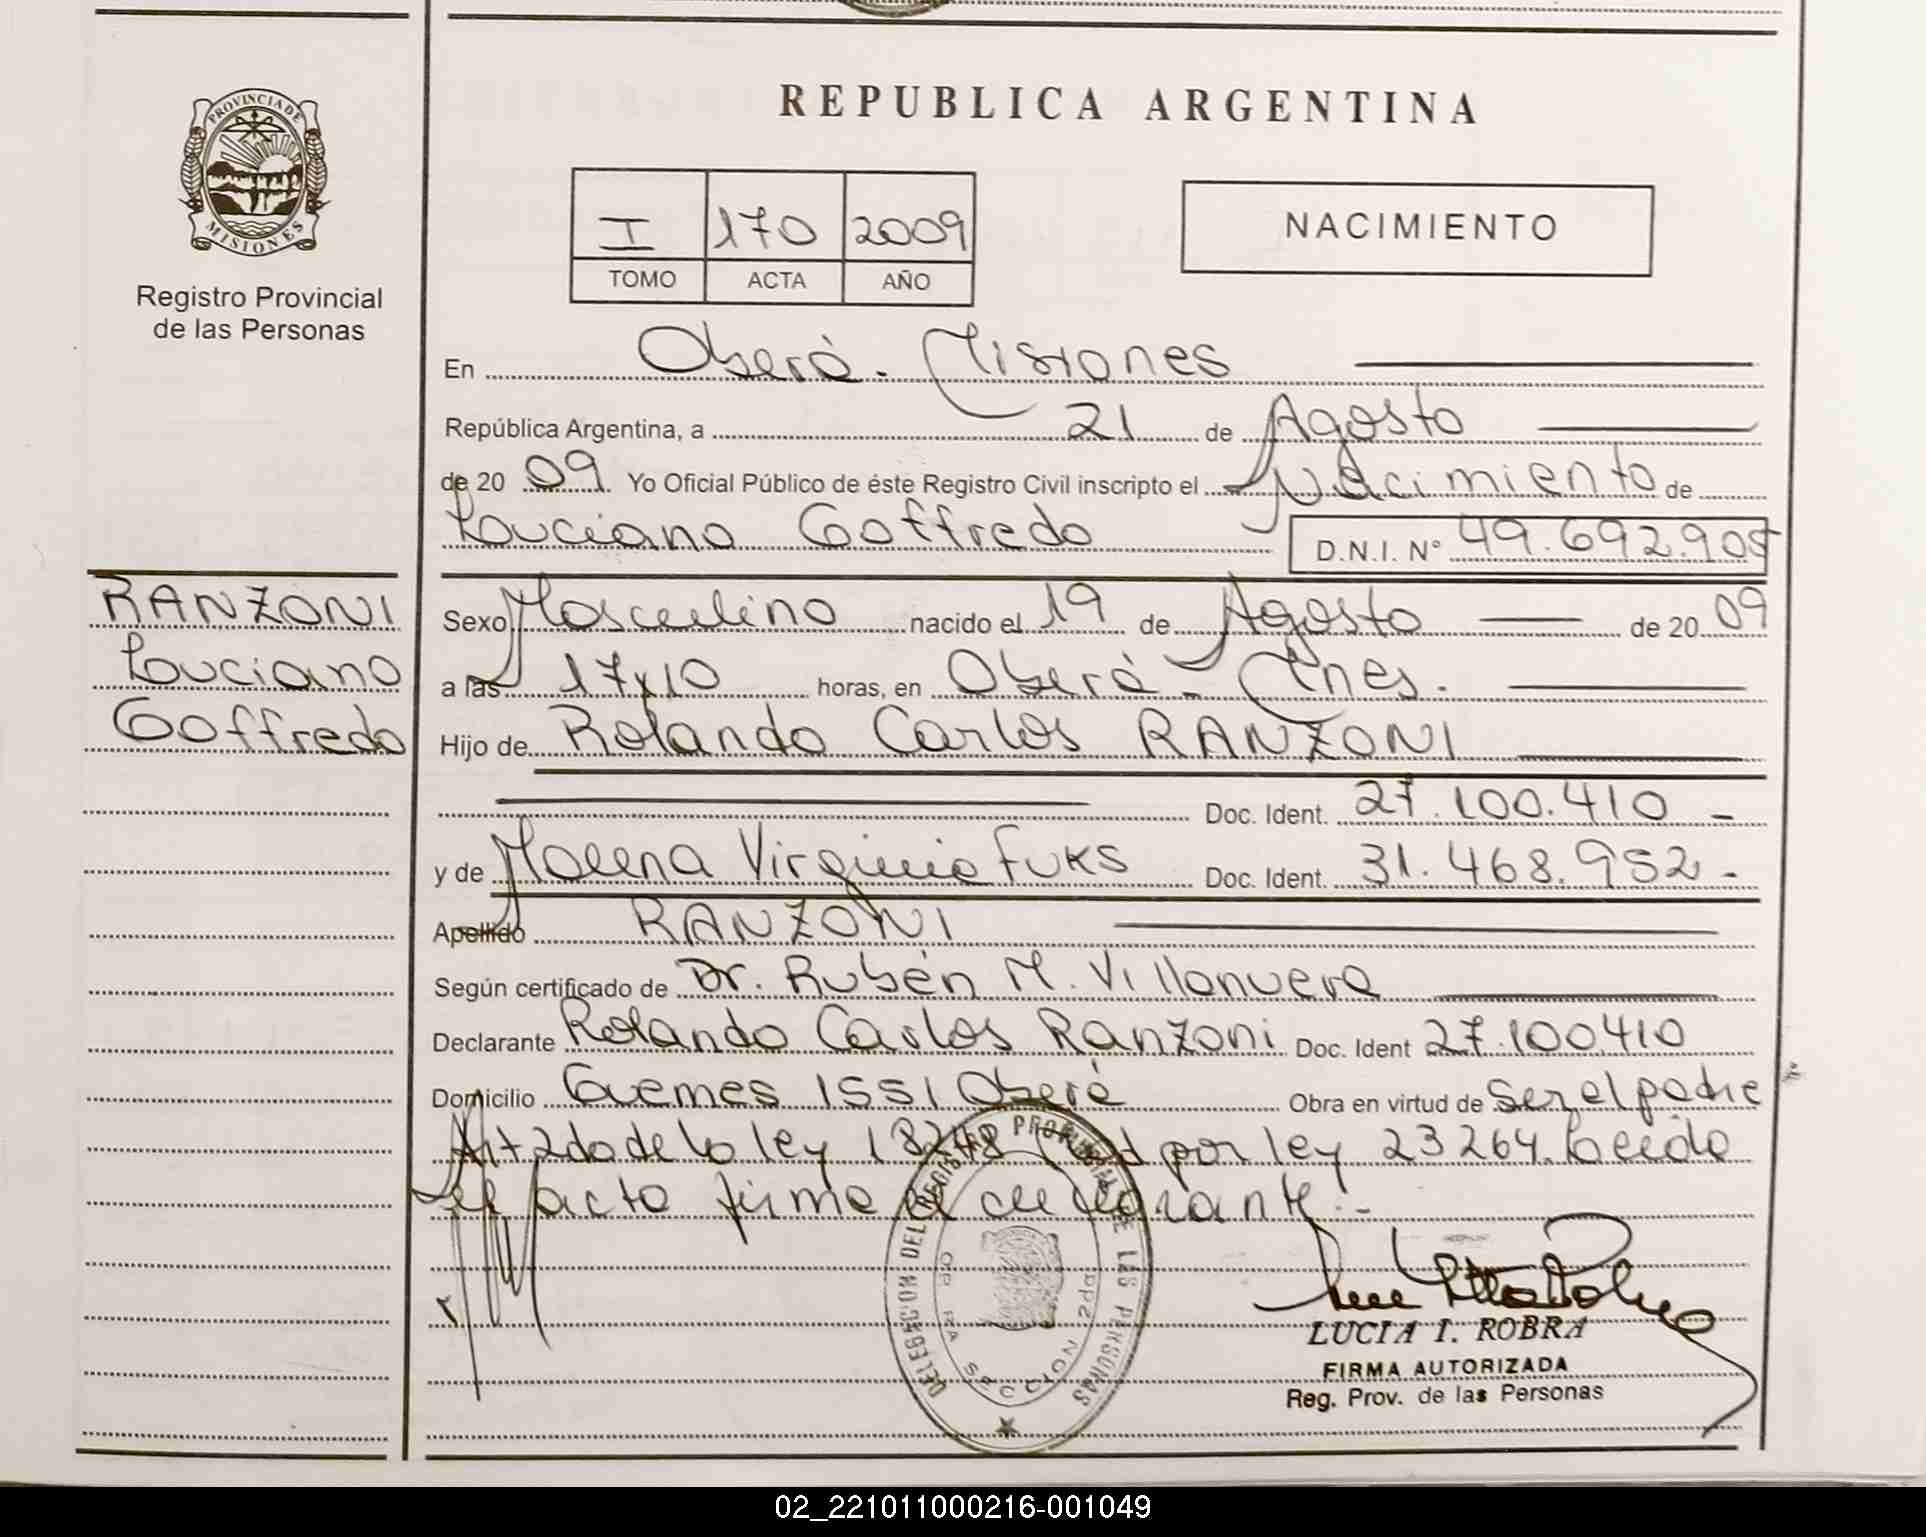 PROVINCIA DE
MISIONES
Registro Provincial
de las Personas
RANZONI
Louciano
Goffredo
REPUBLICA ARGENTINA
I 170 2009
TOMO ACTA AÑO
NACIMIENTO
En Oberá - Misiones
República Argentina, a 21 de Agosto
de 20 09 Yo Oficial Público de éste Registro Civil inscripto el Nacimiento de
Louciano Goffredo D.N.I. Nº 49.692.905
Sexo Masculino nacido el 19 de Agosto de 20 09
a las 17y10 horas, en Oberá - Mnes.
Hijo de Rolando Carlos RANZONI
Doc. Ident. 27.100.410 -
y de Malena Virginia FUKS Doc. Ident. 31.468.952 -
Apellido RANZONI
Según certificado de Dr. Rubén M. Villanueva
Declarante Rolando Carlos Ranzoni Doc. Ident 27.100410
Domicilio Guemes 1551 Oberá Obra en virtud de ser el padre
Art 2do de la ley 18248 por ley 23264. Leida
el acta firma el declarante.-
DELEGACION DEL REGISTRO PROVINCIAL DE LAS PERSONAS
SECCION 2da
LUCIA I. ROBRA
FIRMA AUTORIZADA
Reg. Prov. de las Personas
02_221011000216-001049